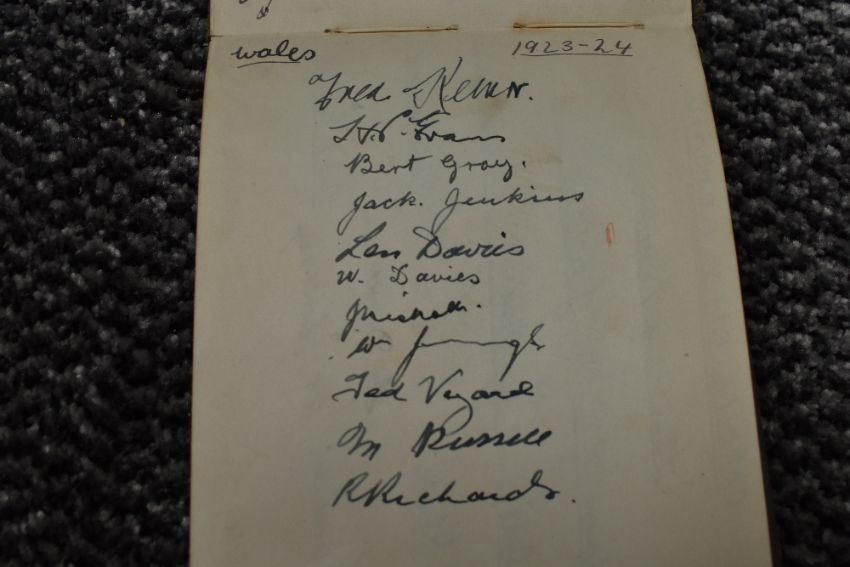 Wales 1923-24
Fred Keenor.
H.P. Evans
Bert Gray.
Jack. Jenkins
Len Davies
W. Davies
W Jennings
Ted Vizard
M Russell
R Richards.